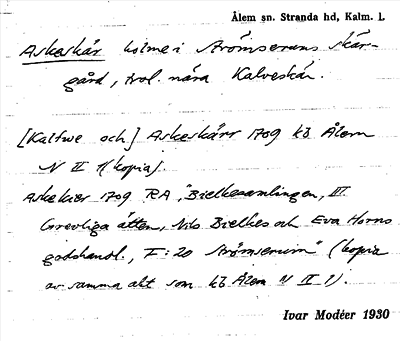 Ålem sn. Stranda hd, Kalm. l.
Askeskär holme i Strömserums skär-
gård, trol. nära Kalveskär.
[Kalfwe och] Askeskärr 1709 kb Ålem
N II 1 (kopia).
Askekier 1709 RA, "Bielkesamlingen, III.
Grevliga ätten, Nils Bielkes och Eva Horns
godshandl., F: 20 Strömserum" (kopia
av samma akt som kb Ålem N II 1).
Ivar Modéer 1930